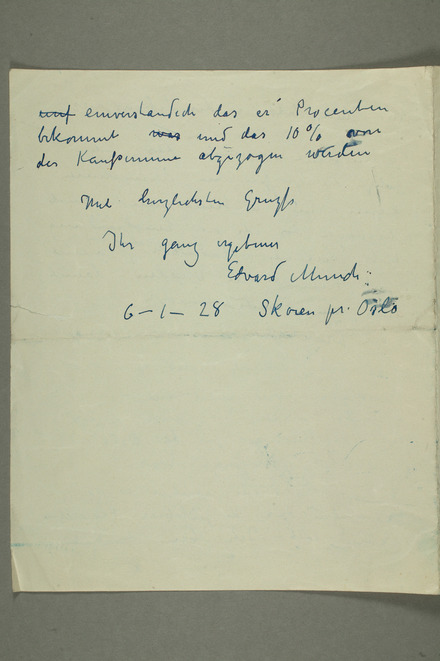 einverständich das er Procenten
bekommt und das 10% von
der Kaufsumme abgezogen werden
Mit herzlichsten Grüss
Ihr ganz ergebener
Edvard Munch
6–1–28 Skøien pr. Oslo